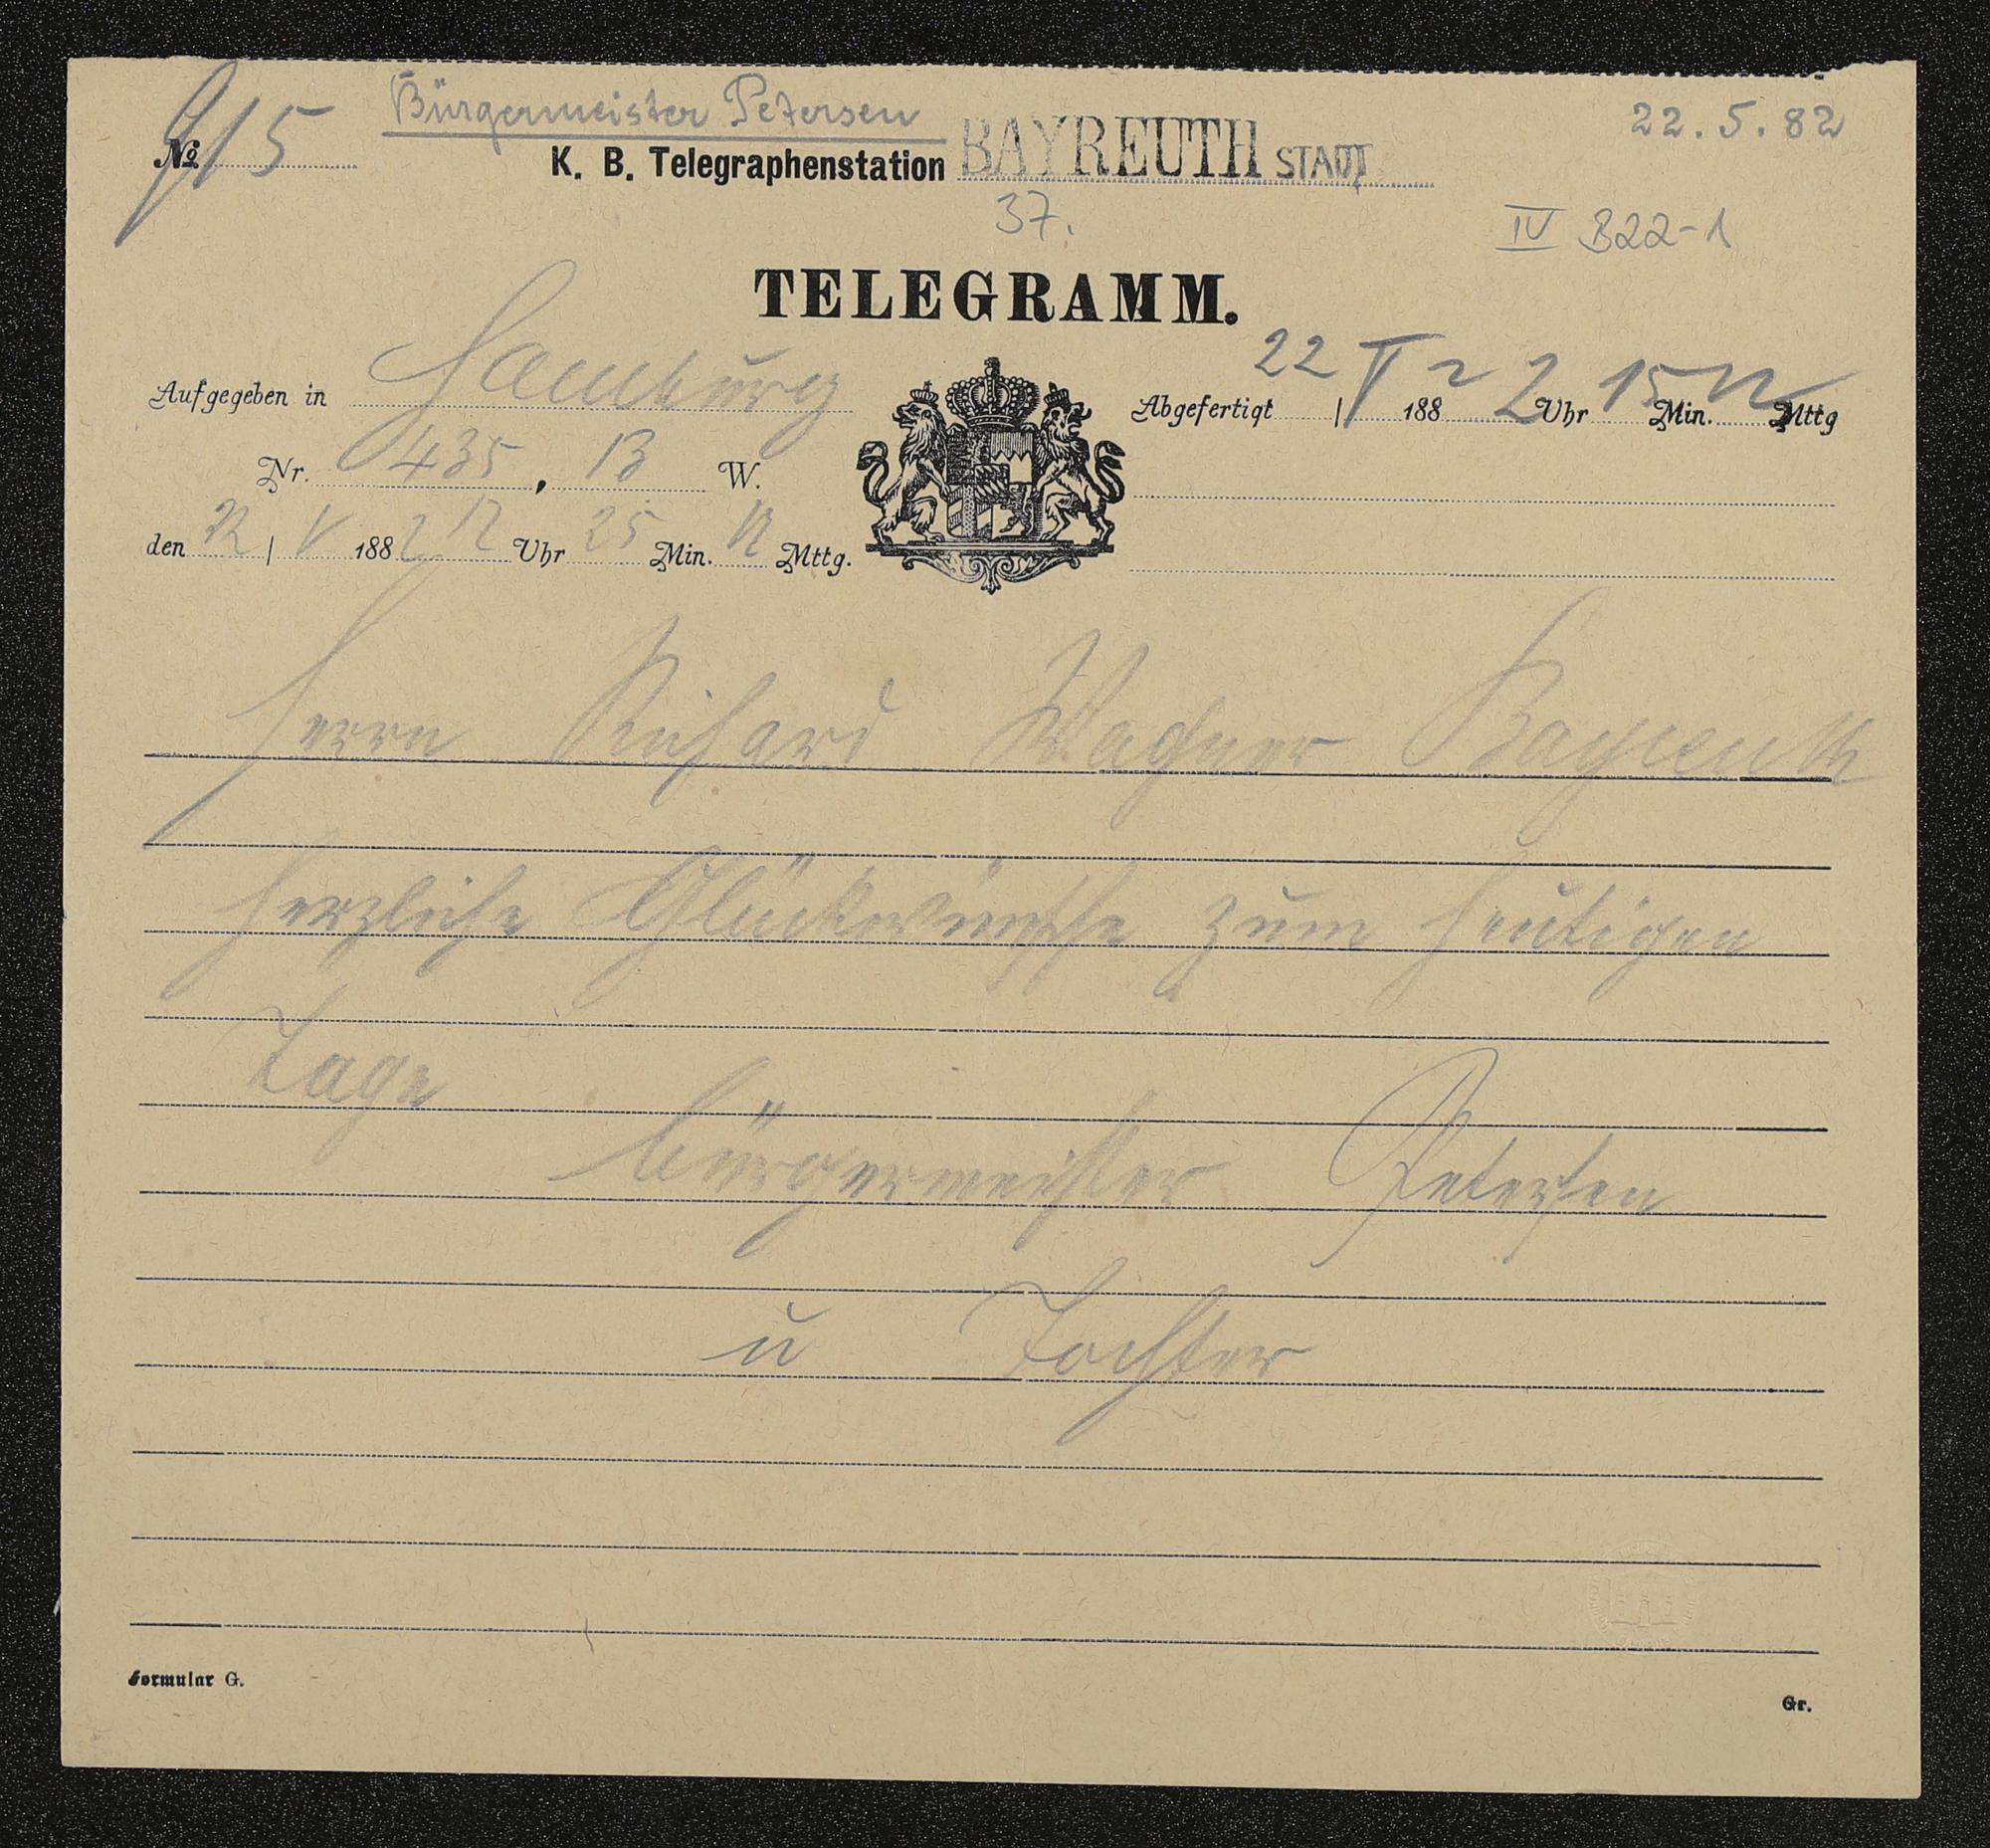 Bürgermeister Petersen
22.5.82
No 915
K. B. Telegraphenstation BAYREUTH STADT
37.
IV B22-1
TELEGRAMM.
Aufgegeben in Hamburg
Abgefertigt 22 / V 1882 2 Uhr 15 Min. N Mttg
Nr. 435, 13 W.
den 22 / V 1882 12 Uhr 25 Min. N Mttg.
Herrn Richard Wagner Bayreuth
Herzliche Glückwünsche zum heutigen
Tage
Bürgermeister Petersen
u Tochter
Formular G.
Gr.